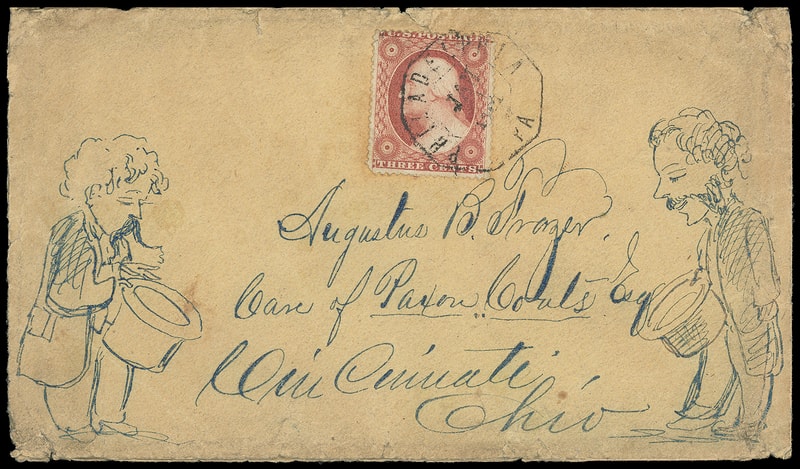 U.S. POSTAGE
THREE CENTS
PHILADELPHIA
PA
Augustus B. Frazer,
Care of Paxon Coats Esq
Cin Cinnati
Ohio